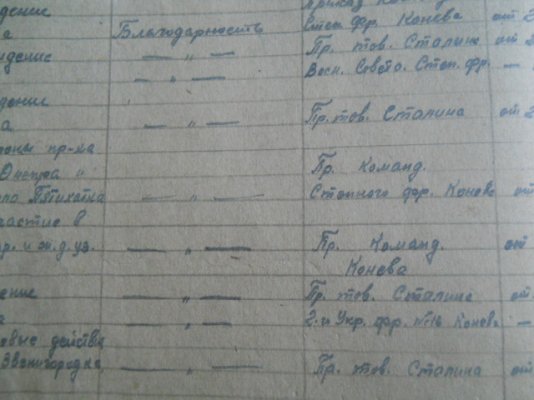 дение Приказ
а Благодарность Степ. фр. Конева от 2
ждение — „ — Пр. тов. Сталина от 2
— „ — Воен. Совета. Степ. фр. —
дение
а — „ — Пр. тов. Сталина от 2
Днепра и Пр. Команд.
Пятихатка — „ — Степного фр. Конева от
частие в
р. и ж.д. уз. — „ — Пр. Команд. от
Конева
ение — „ — Пр. тов. Сталина от
а — „ — 2-й Укр. фр. Конева —
овые действия
Звенигородка — „ — Пр. тов. Сталина от